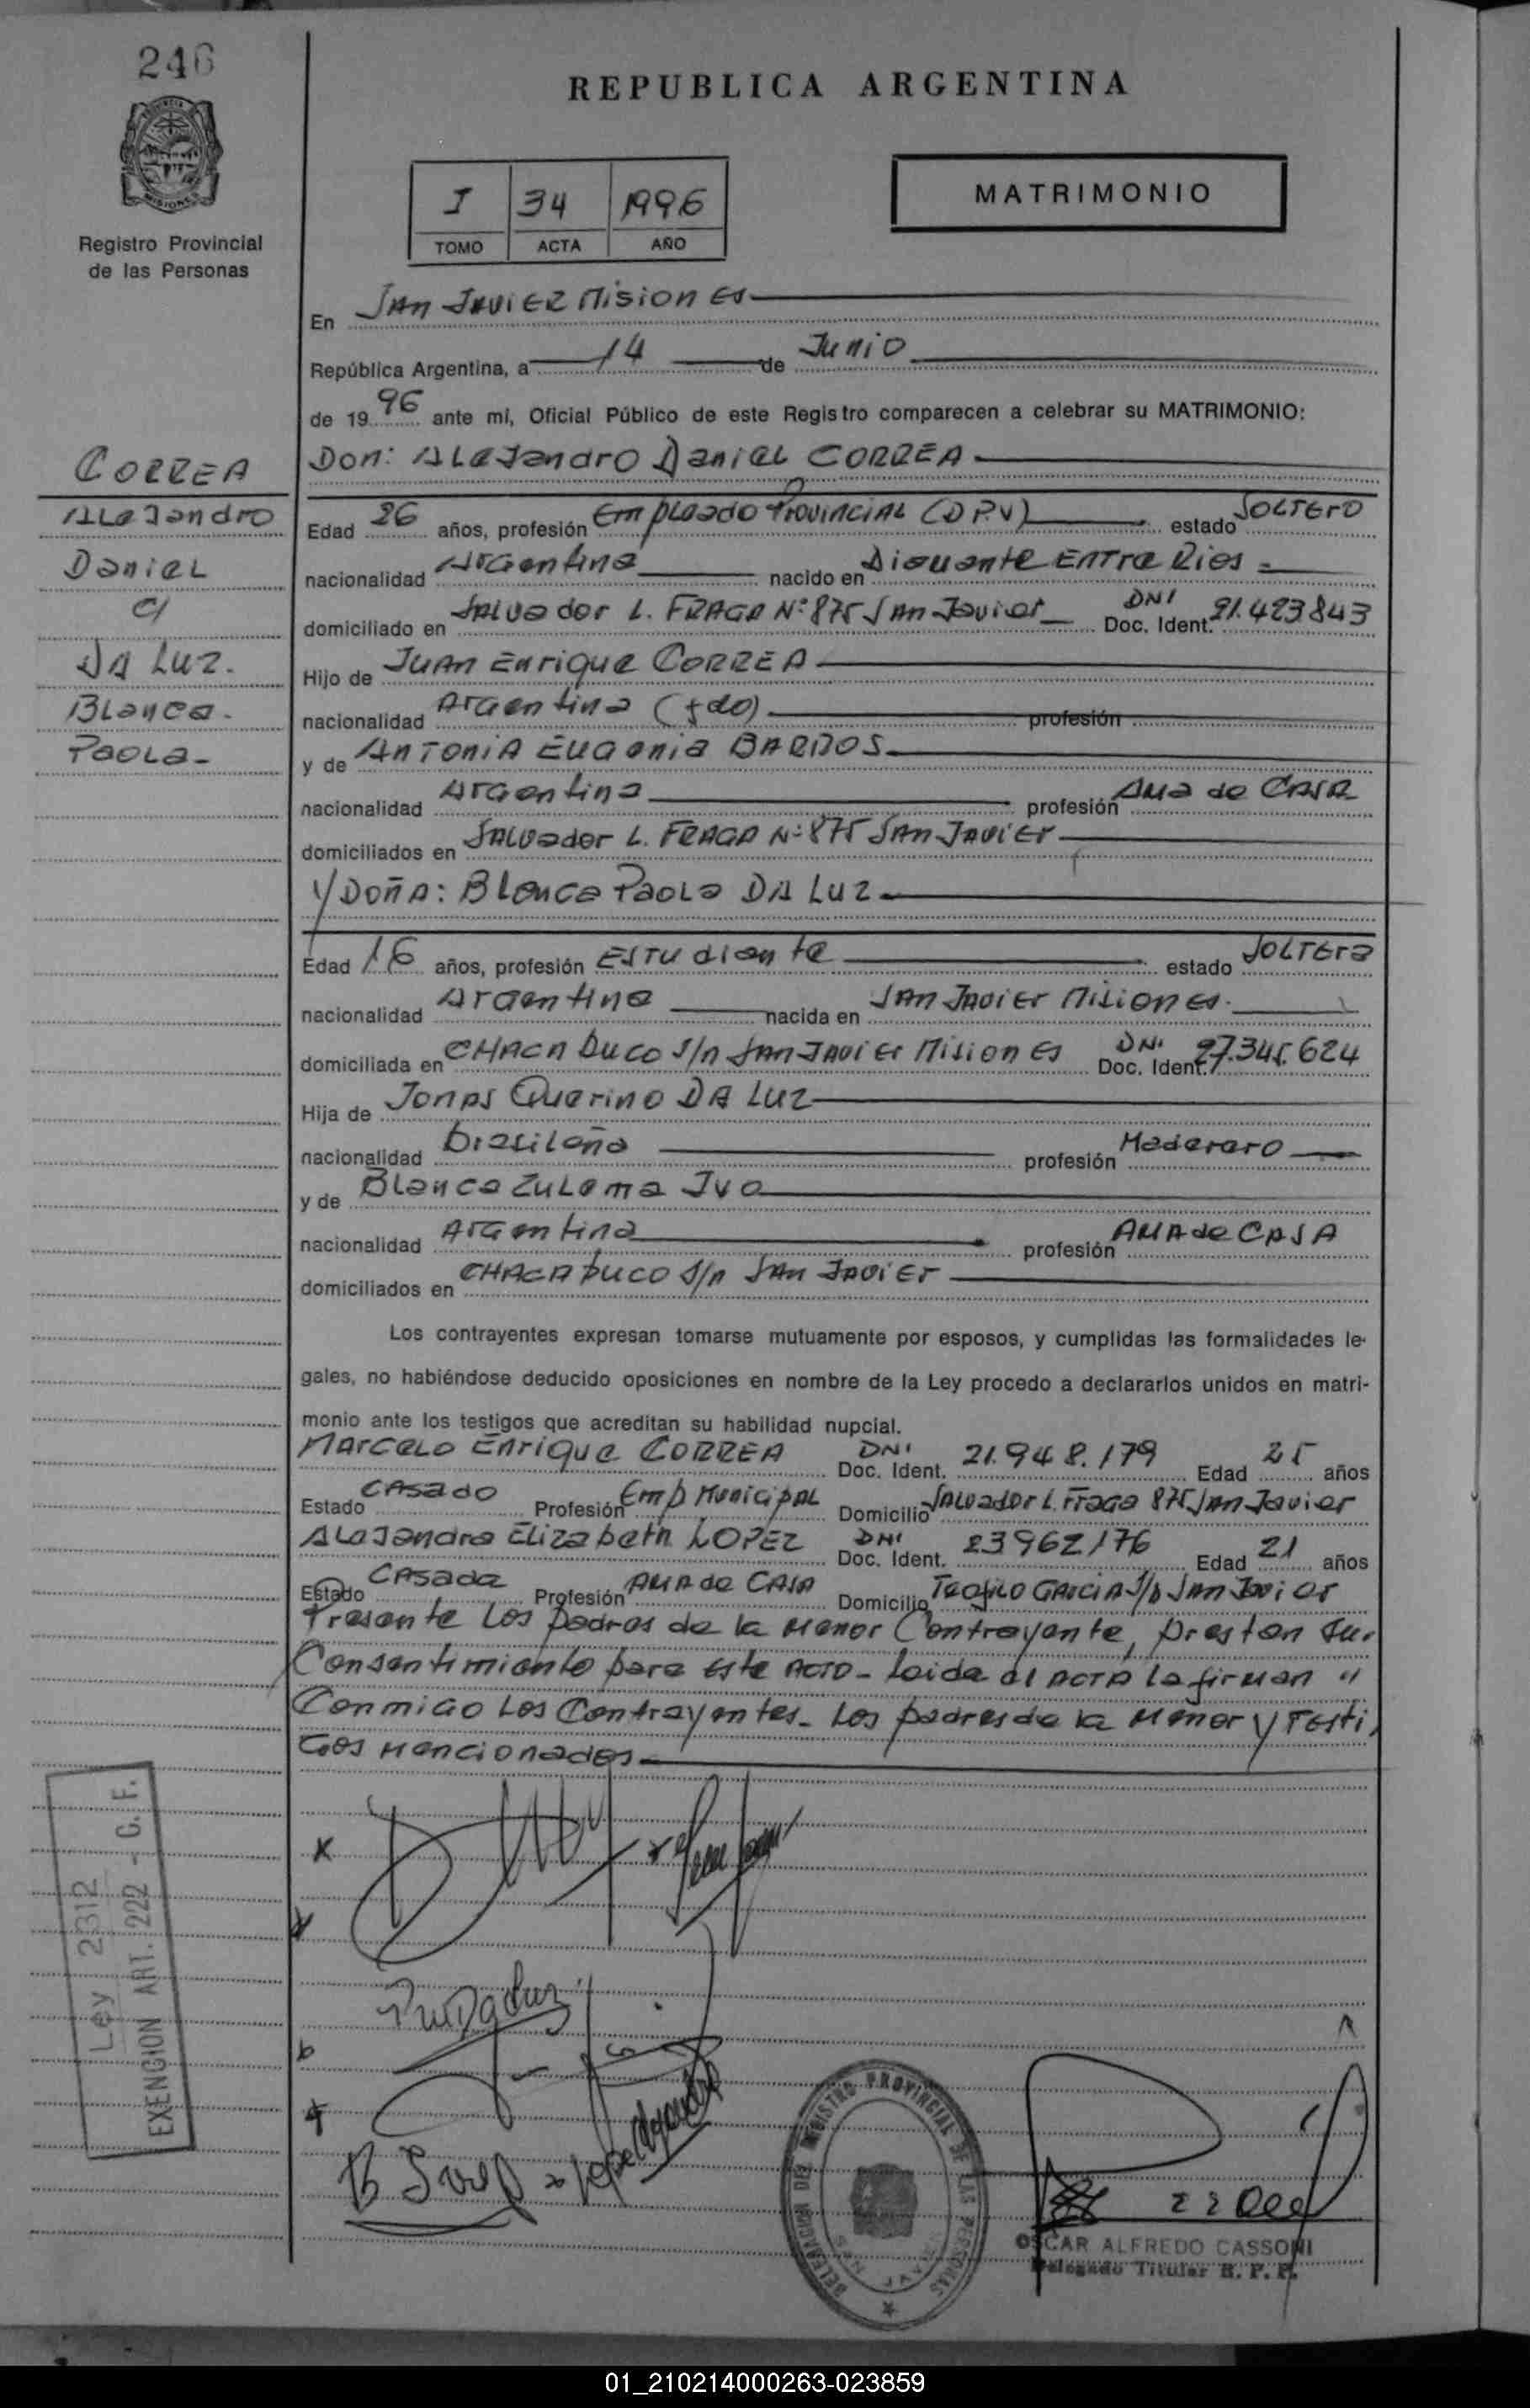 246
REPUBLICA ARGENTINA
MISIONES
Registro Provincial
de las Personas
I 34 1996
TOMO ACTA AÑO
MATRIMONIO
En San Javier Misiones
República Argentina, a 14 de Junio
de 1996 ante mi, Oficial Público de este Registro comparecen a celebrar su MATRIMONIO:
CORREA
Alejandro
Daniel
c/
DA LUZ.
Blanca.
Paola-
Don: Alejandro Daniel CORREA
Edad 26 años, profesión Empleado Provincial (D.P.V) estado Soltero
nacionalidad Argentina nacido en Diamante Entre Rios
domiciliado en Salvador L. FRAGA Nº 875 San Javier DNI Doc. Ident. 21.423843
Hijo de Juan Enrique CORREA
nacionalidad Argentina (fdo) profesión
y de Antonia Eugenia BARDOS
nacionalidad Argentina profesión Ama de Casa
domiciliados en Salvador L. FRAGA Nº 875 San Javier
Y Doña: Blanca Paola DA LUZ
Edad 16 años, profesión Estudiante estado Soltera
nacionalidad Argentina nacida en San Javier Misiones.
domiciliada en CHACABUCO s/n San Javier Misiones DNI Doc. Ident. 27.345.624
Hija de Jonas Querino DA LUZ
nacionalidad brasileña profesión Maderero
y de Blanca Zulema Ivo
nacionalidad Argentina profesión AMA de CASA
domiciliados en CHACABUCO s/n San Javier
Los contrayentes expresan tomarse mutuamente por esposos, y cumplidas las formalidades le-
gales, no habiéndose deducido oposiciones en nombre de la Ley procedo a declararlos unidos en matri-
monio ante los testigos que acreditan su habilidad nupcial.
Marcelo Enrique CORREA DNI Doc. Ident. 21.948.179 Edad 25 años
Estado Casado Profesión Emp Municipal Domicilio Salvador L. Fraga 875 San Javier
Alejandra Elizabeth LOPEZ DNI Doc. Ident. 23962176 Edad 21 años
Estado Casada Profesión AMA de CASA Domicilio Teofilo Garcia s/n San Javier
Presente los padres de la menor Contrayente, prestan su
Consentimiento para este acto- leida el acta la firman "
Conmigo los Contrayentes- los padres de la menor y Testi
gos mencionados
Ley 2312
EXENCION ART. 222 - G. F.
DELEGACION DEL REGISTRO PROVINCIAL DE LAS PERSONAS
OSCAR ALFREDO CASSONI
Delegado Titular R. P. P.
01_210214000263-023859